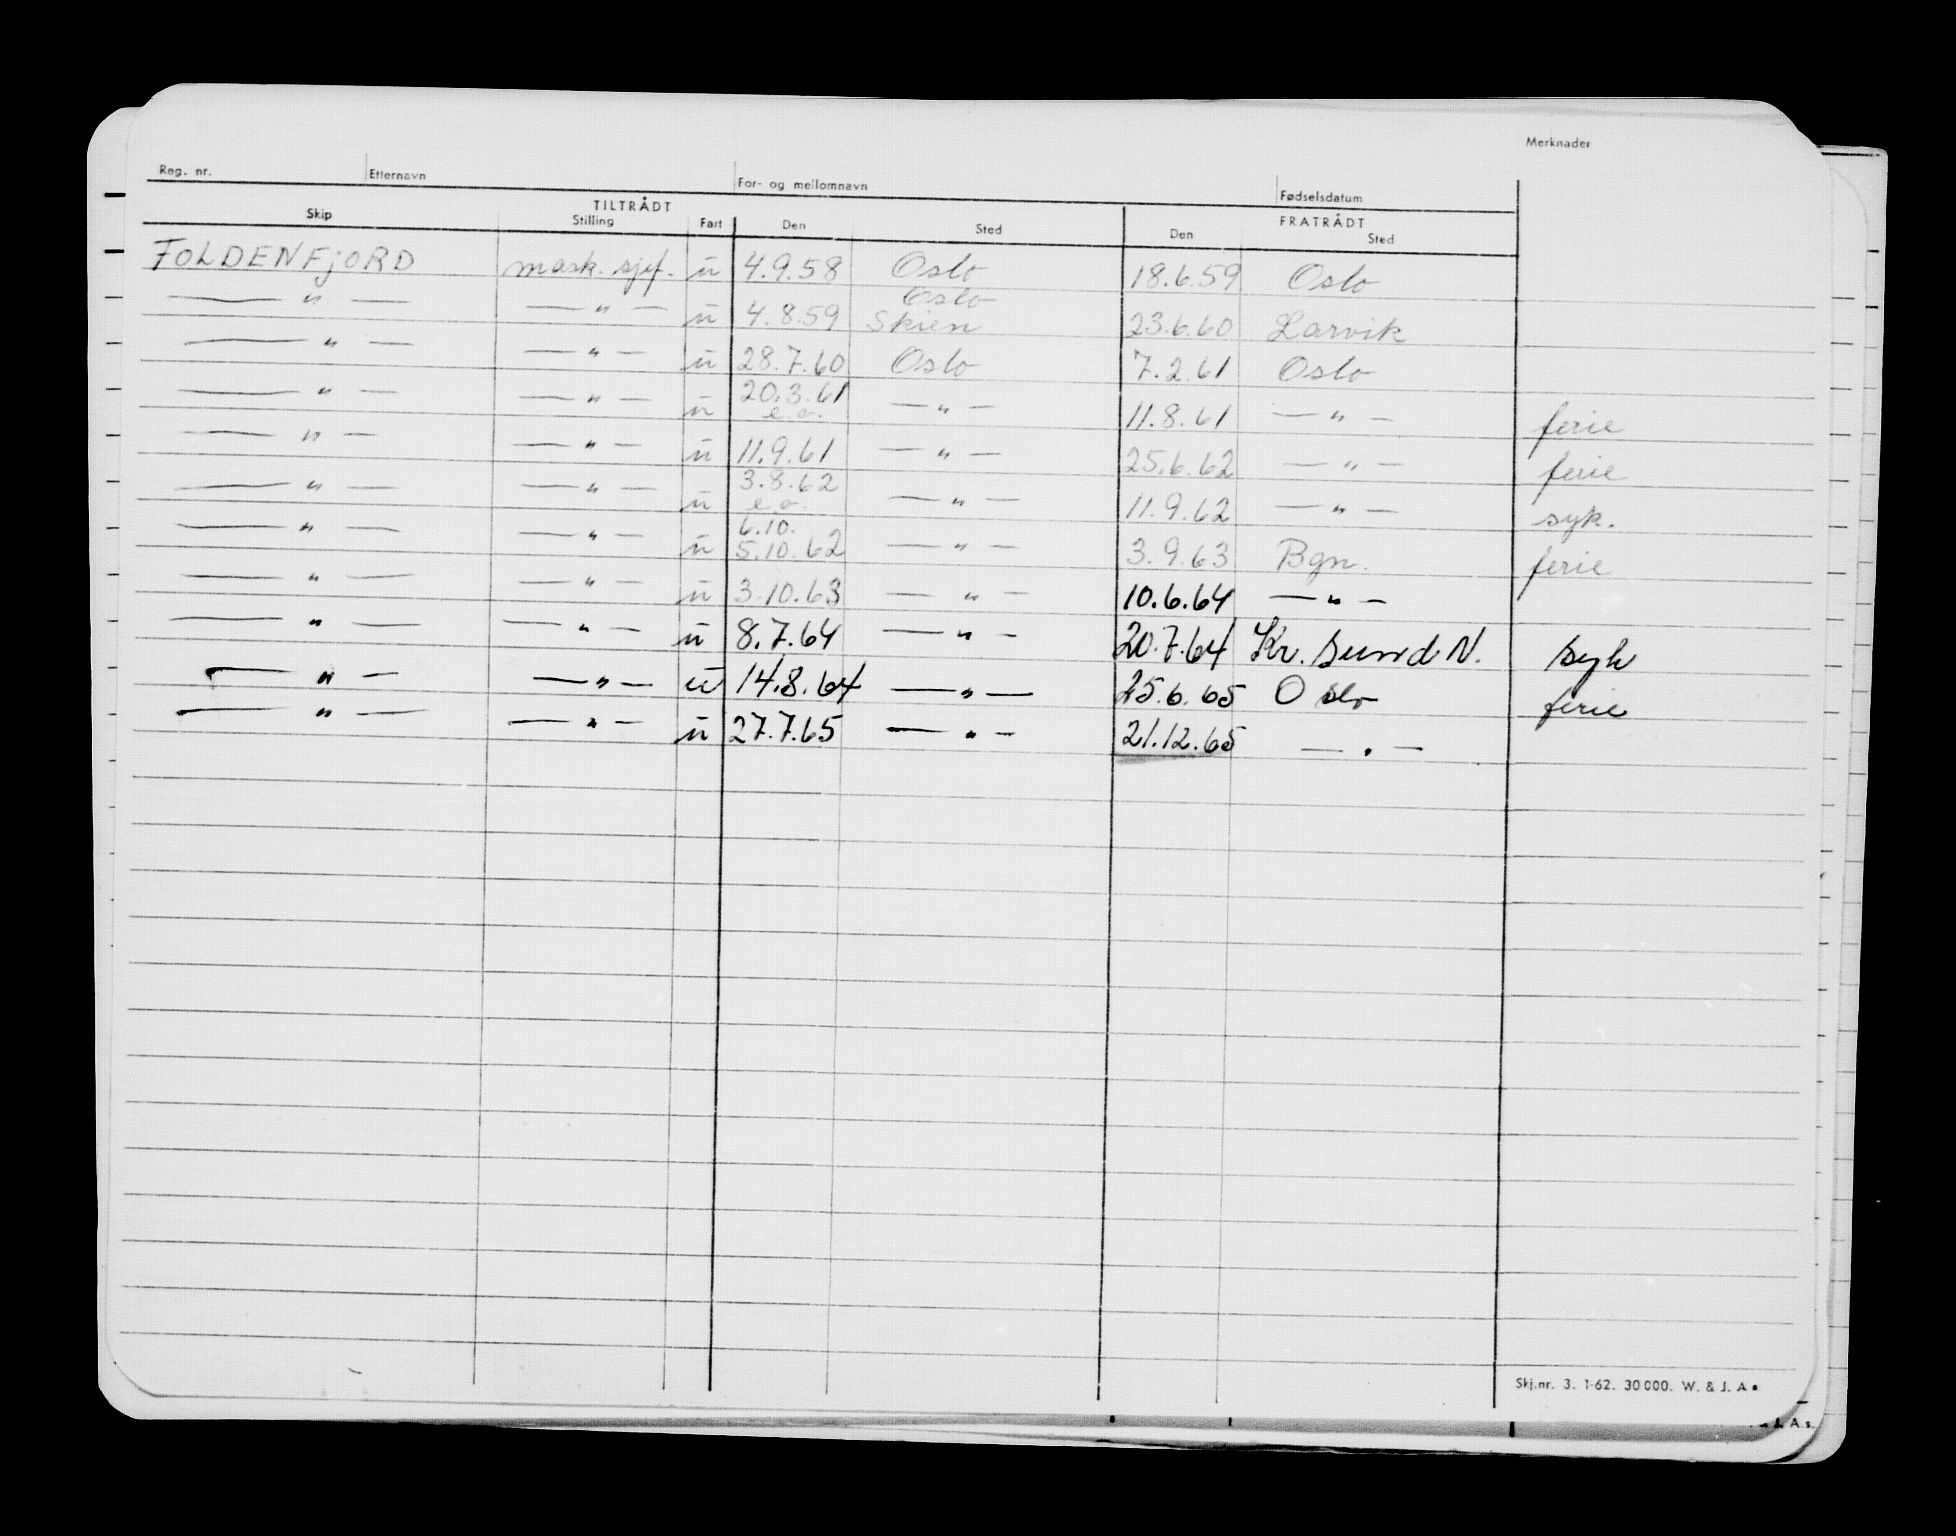 Merknader
Reg. nr. Etternavn For- og mellomnavn Fødselsdatum
TILTRÅDT FRATRÅDT
Skip Stilling Fart Den Sted Den Sted
FOLDENFJORD mask. sjef. ū 4.9.58 Oslo 18.6.59 Oslo
Oslo
— " — — " — ū 4.8.59 Skien 23.6.60 Larvik
— " — — " — ū 28.7.60 Oslo 7.2.61 Oslo
20.3.61
— " — — " — ū e.o. — " — 11.8.61 — " — ferie
— " — — " — ū 11.9.61 — " — 25.6.62 — " — ferie
3.8.62
— " — — " — ū e.o. — " — 11.9.62 — " — syk.
6.10.
— " — — " — ū 5.10.62 — " — 3.9.63 Bgn. ferie
— " — — " — ū 3.10.63 — " — 10.6.64 — " —
— " — — " — ū 8.7.64 — " — 20.7.64 Kr. sund N. syk
— " — — " — ū 14.8.64 — " — 25.6.65 Oslo ferie
— " — — " — ū 27.7.65 — " — 21.12.65 — " —
Skj.nr. 3. 1-62. 30 000. W. & J. A
J. A s.